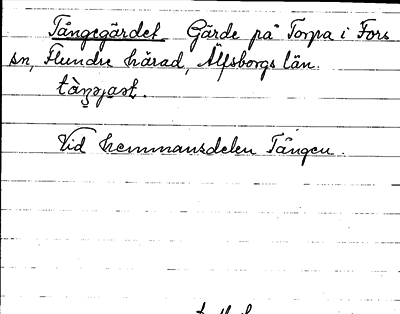 Tångegärdet Gärde på Torpa i Fors
sn, Flundre härad, Älfsborgs län.
Vid hemmansdelen Tången.